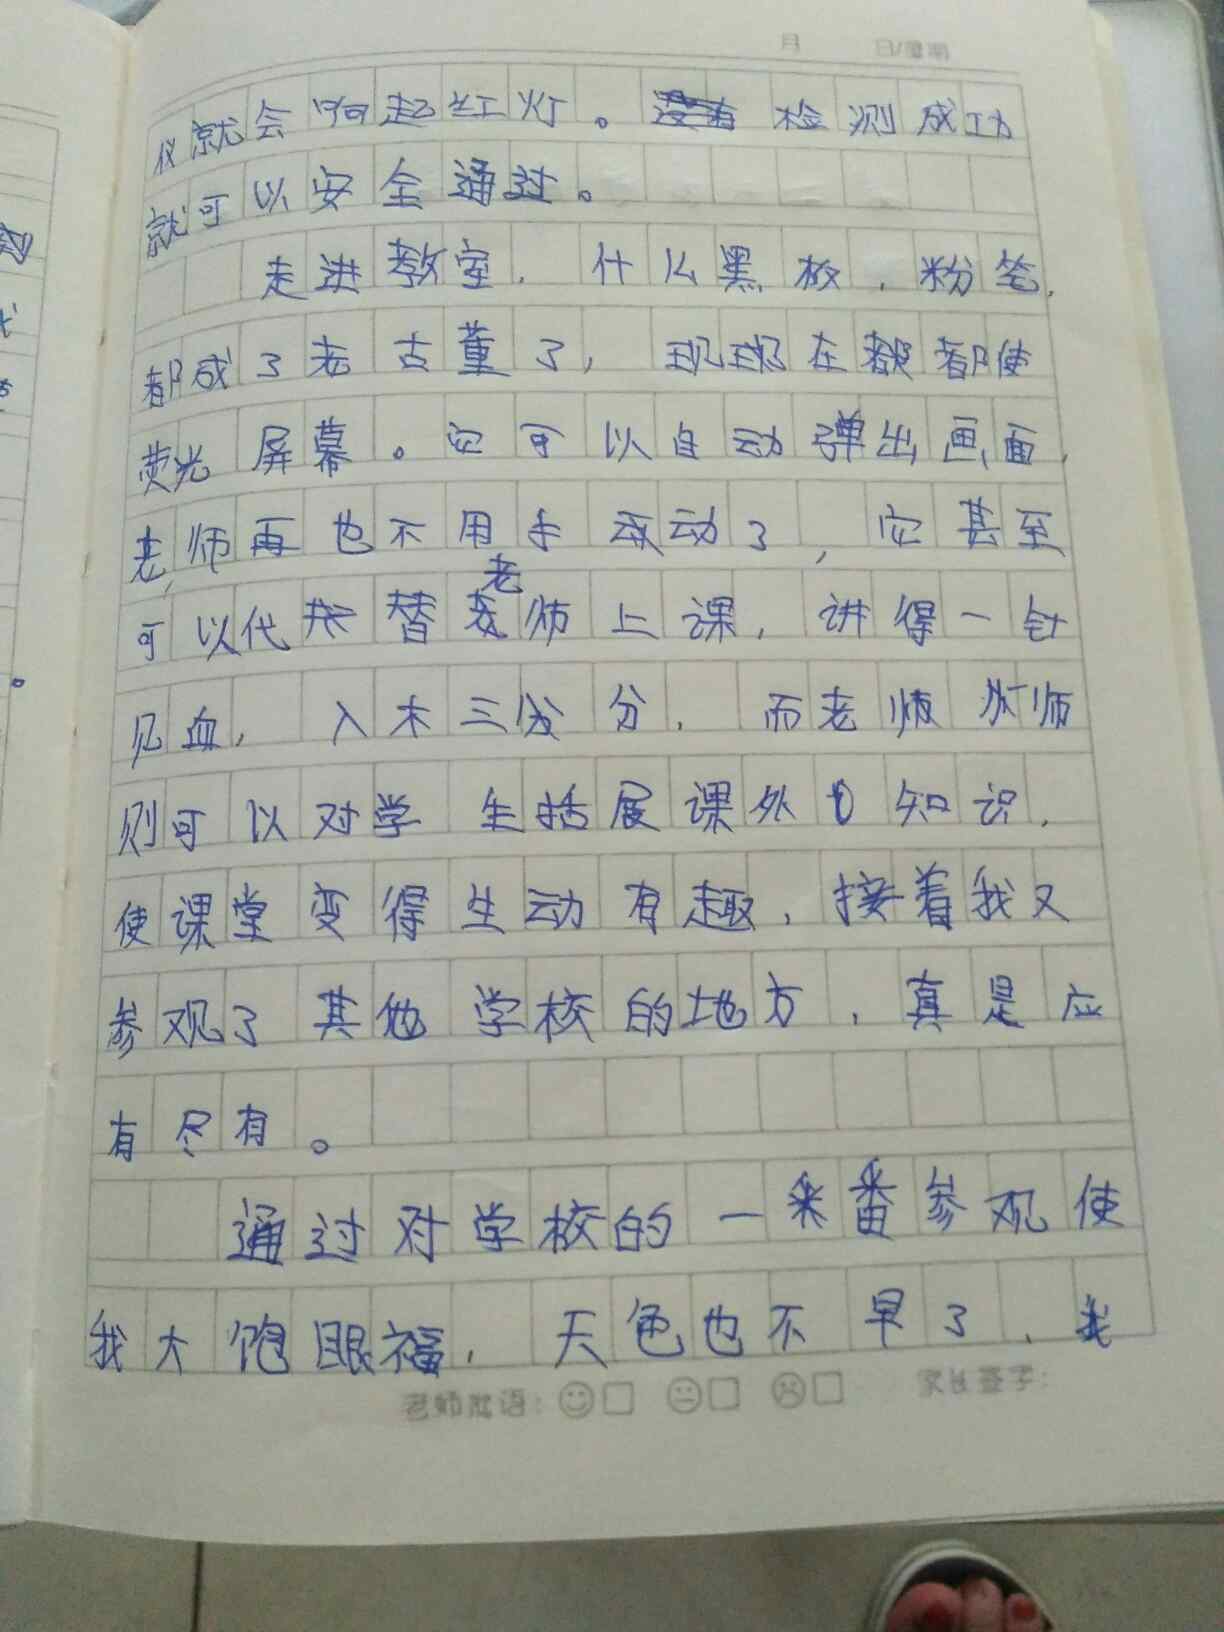 月 日/星期
仪就会响起红灯。检测成功
就可以安全通过。
走进教室，什么黑板，粉笔，
都成了老古董了，现在都使
荧光屏幕。它可以自动弹出画面，
老师再也不用手动了，它甚至
可以代替老师上课，讲得一针
见血，入木三分，而老师
则可以对学生括展课外知识，
使课堂变得生动有趣，接着我又
参观了其他学校的地方，真是应
有尽有。
通过对学校的一番参观使
我大饱眼福，天色也不早了，我
老师批语：□ □ □ 家长签字：